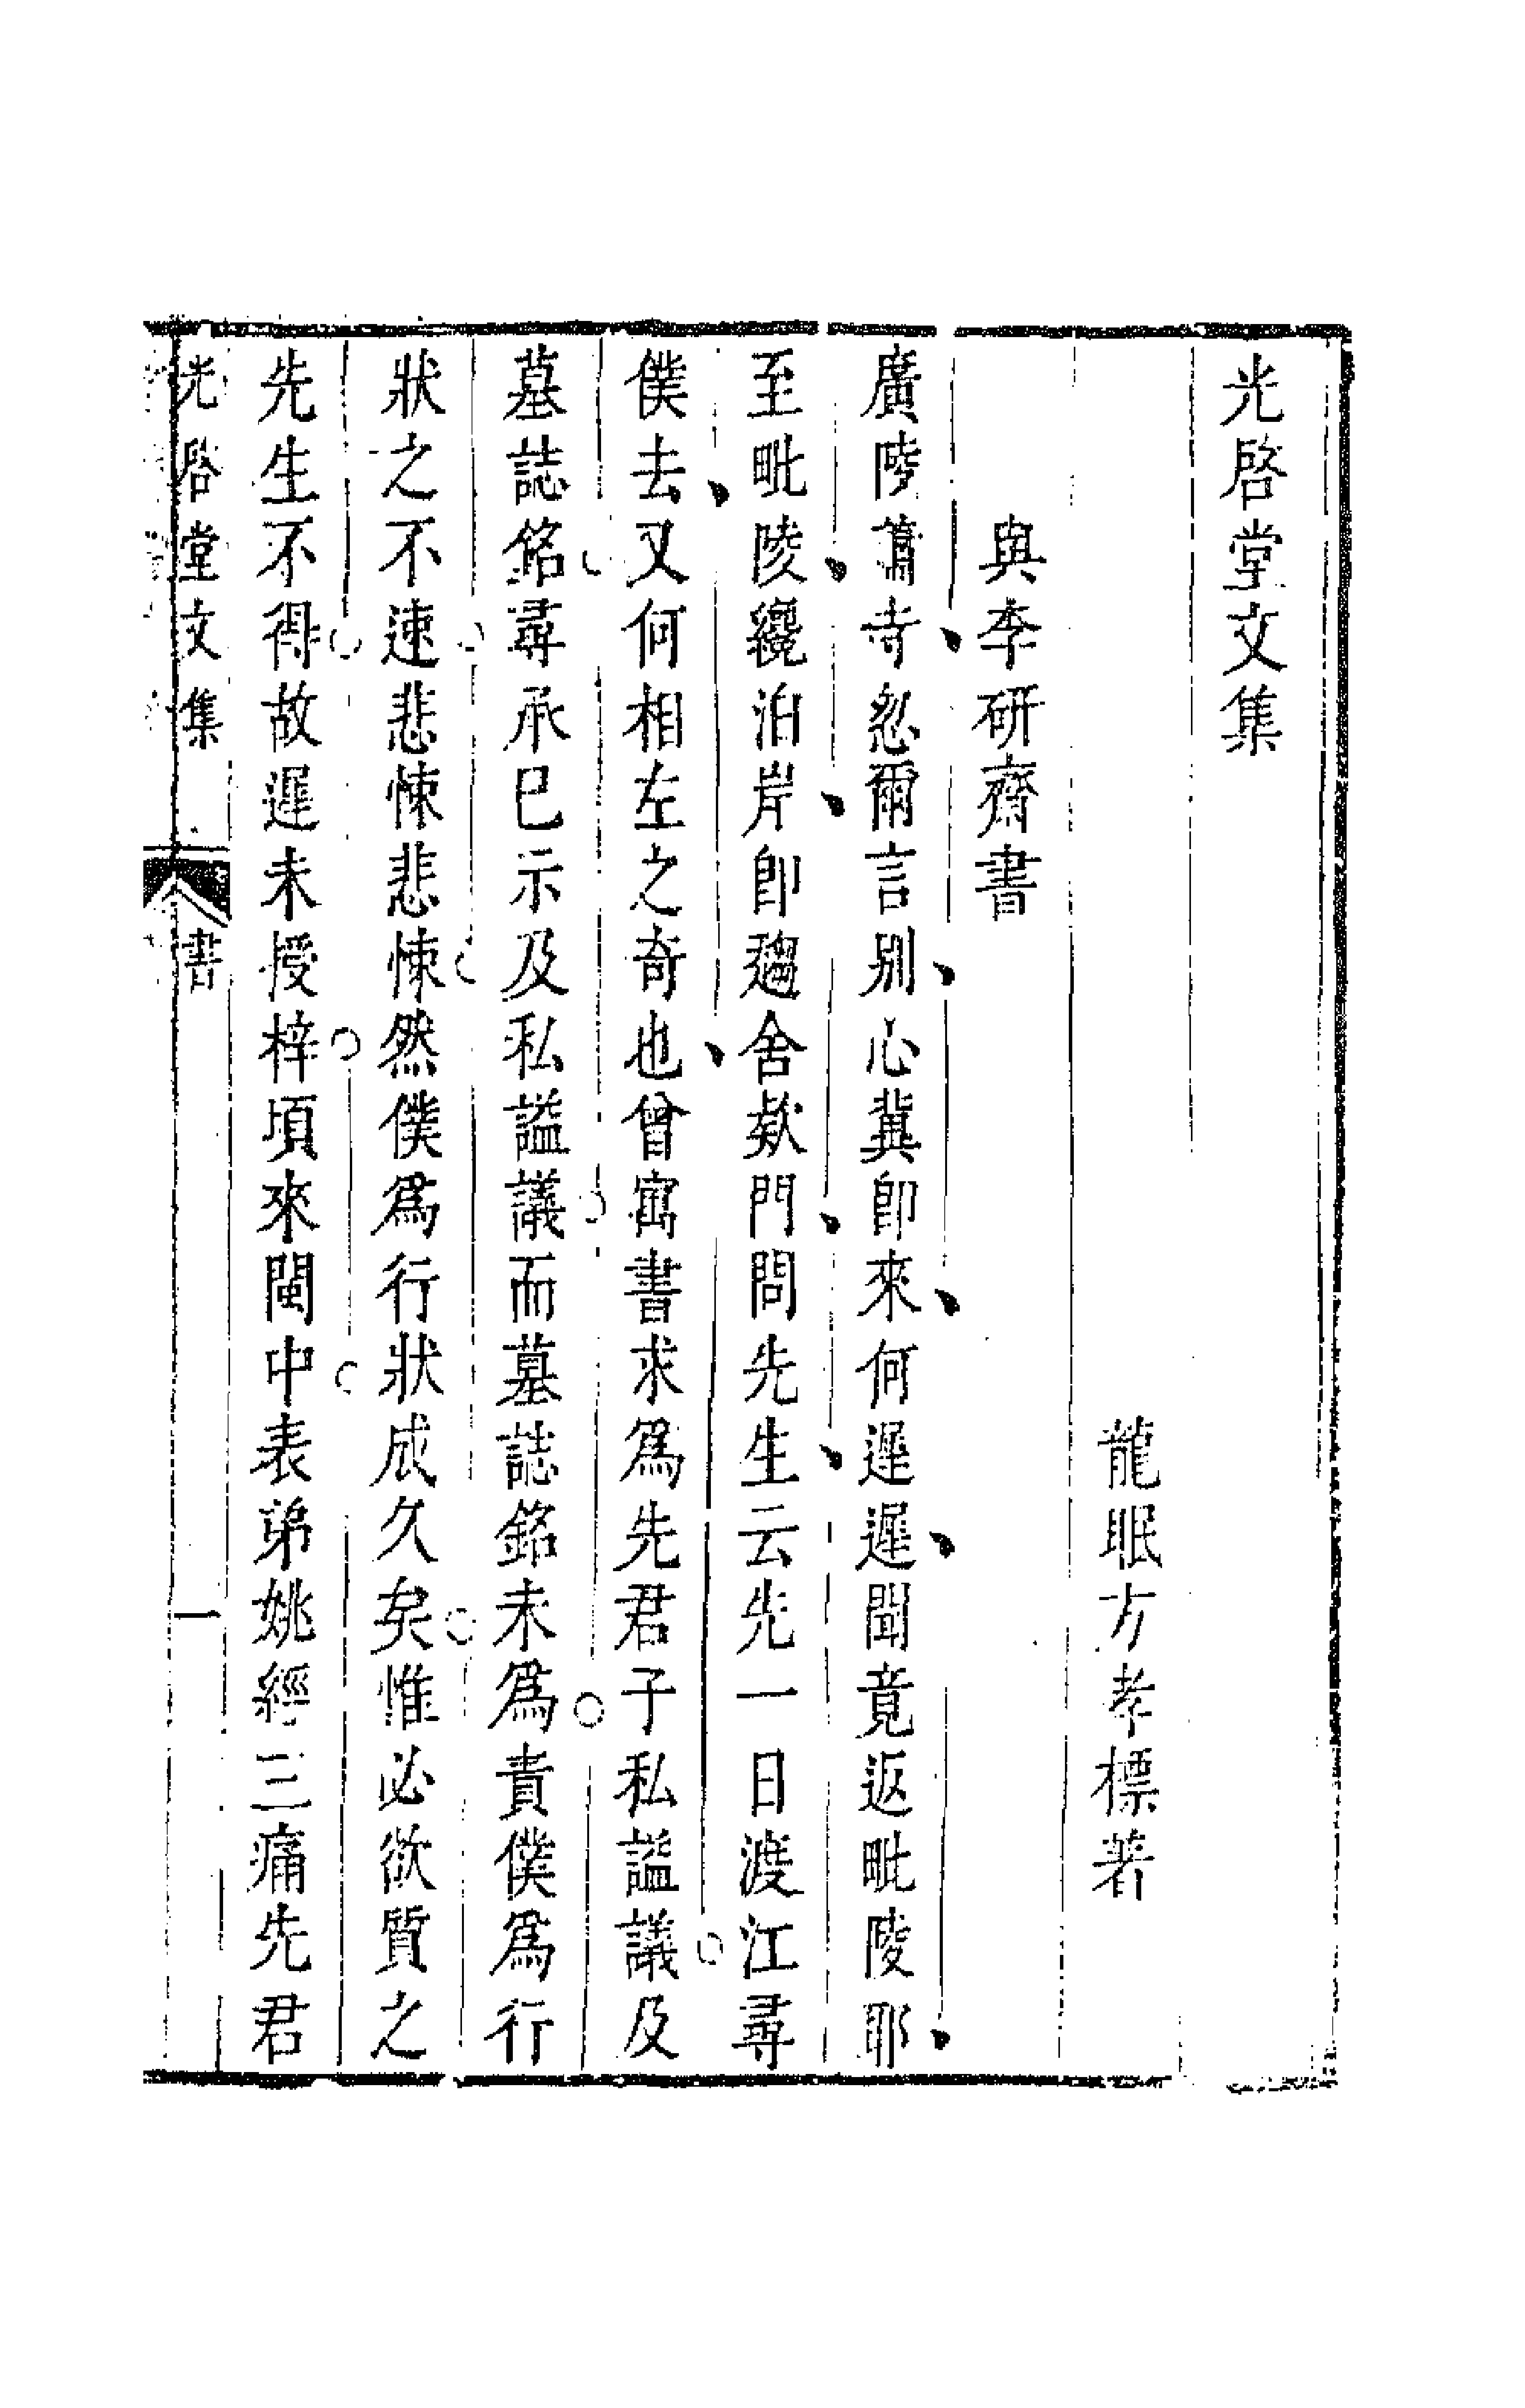 光啓堂文集
龍眠方孝標著
與李研齋書
廣陵蕭寺忽爾言别心冀卽來何遲遲聞竟返毗陵耶
至毗陵纔泊岸卽趨舍欵門問先生云先一日渡江尋
僕去又何相左之奇也曾寓書求爲先君子私謚議及
墓誌銘尋承巳示及私謚議而墓誌銘未爲責僕爲行
狀之不速悲悚悲悚然僕爲行狀成久矣惟必欲質之
先生不得故遲未授梓頃來閩中表弟姚經三痛先君
光啓堂文集 書 一